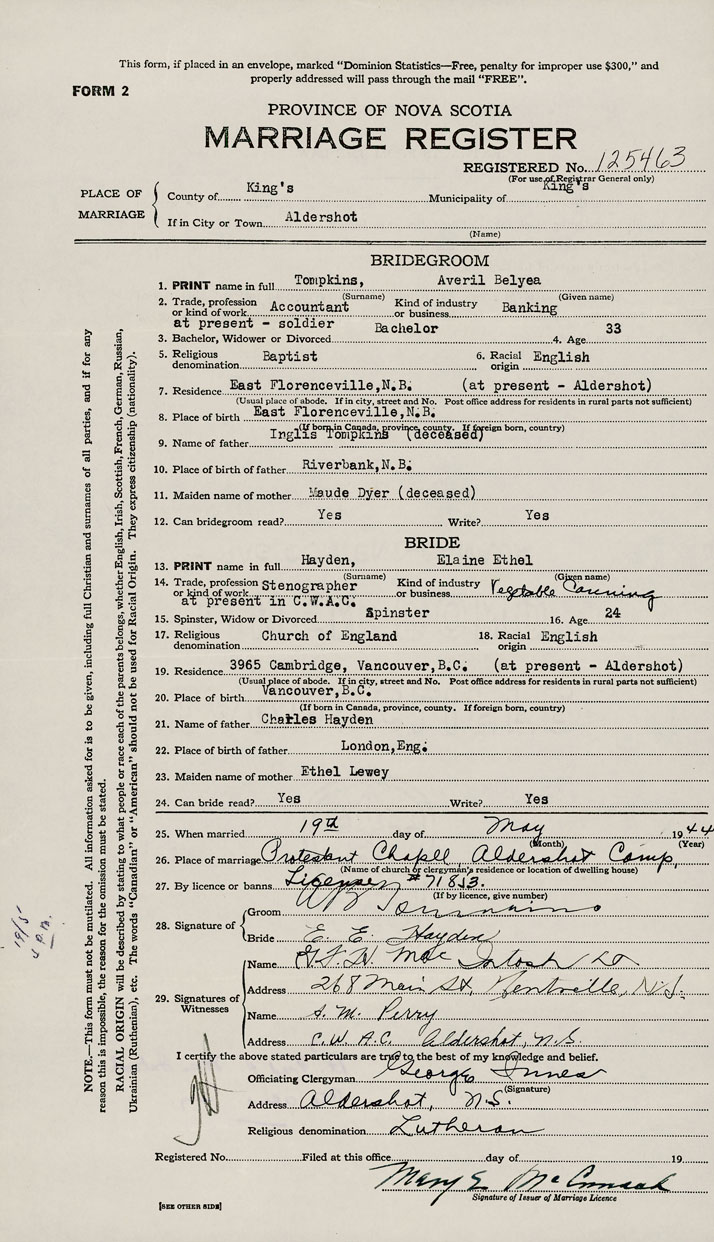 This form, if placed in an envelope, marked "Dominion Statistics—Free, penalty for improper use $300," and
properly addressed will pass through the mail "FREE".
FORM 2
PROVINCE OF NOVA SCOTIA
MARRIAGE REGISTER
REGISTERED No. 125463
(For use of Registrar General only)
PLACE OF MARRIAGE
County of King's Municipality of King's
If in City or Town Aldershot
(Name)
BRIDEGROOM
1. PRINT name in full Tompkins, Averil Belyea
(Surname) (Given name)
2. Trade, profession or kind of work Accountant Kind of industry or business Banking
at present - soldier
3. Bachelor, Widower or Divorced Bachelor 4. Age 33
5. Religious denomination Baptist 6. Racial origin English
7. Residence East Florenceville, N.B. (at present - Aldershot)
(Usual place of abode. If in city, street and No. Post office address for residents in rural parts not sufficient)
8. Place of birth East Florenceville, N.B.
(If born in Canada, province, county. If foreign born, country)
9. Name of father Inglis Tompkins (deceased)
10. Place of birth of father Riverbank, N.B.
11. Maiden name of mother Maude Dyer (deceased)
12. Can bridegroom read? Yes Write? Yes
BRIDE
13. PRINT name in full Hayden, Elaine Ethel
(Surname) (Given name)
14. Trade, profession or kind of work Stenographer Kind of industry or business Vegetable Canning
at present in C.W.A.C.
15. Spinster, Widow or Divorced Spinster 16. Age 24
17. Religious denomination Church of England 18. Racial origin English
19. Residence 3965 Cambridge, Vancouver, B.C. (at present - Aldershot)
(Usual place of abode. If in city, street and No. Post office address for residents in rural parts not sufficient)
20. Place of birth Vancouver, B.C.
(If born in Canada, province, county. If foreign born, country)
21. Name of father Charles Hayden
22. Place of birth of father London, Eng.
23. Maiden name of mother Ethel Lewey
24. Can bride read? Yes Write? Yes
25. When married 19th day of May 1944
(Month) (Year)
26. Place of marriage Protestant Chapell, Aldershot Camp,
(Name of church or clergyman's residence or location of dwelling house)
27. By licence or banns License #71853.
(If by licence, give number)
28. Signature of
Groom
Bride E. E. Hayden
29. Signatures of Witnesses
Name Mac Intosh
Address 268 Main St, Kentville, N.S.
Name S. M. Perry
Address C.W.A.C. Aldershot, N.S.
I certify the above stated particulars are true to the best of my knowledge and belief.
Officiating Clergyman George Innes
(Signature)
Address Aldershot, N.S.
Religious denomination Lutheran
Registered No. Filed at this office day of 19
Mary E. McCormack
Signature of Issuer of Marriage Licence
[SEE OTHER SIDE]
NOTE.—This form must not be mutilated. All information asked for is to be given, including full Christian and surnames of all parties, and if for any
reason this is impossible, the reason for the omission must be stated.
RACIAL ORIGIN will be described by stating to what people or race each of the parents belongs, whether English, Irish, Scottish, French, German, Russian,
Ukrainian (Ruthenian), etc. The words "Canadian" or "American" should not be used for Racial Origin. They express citizenship (nationality).